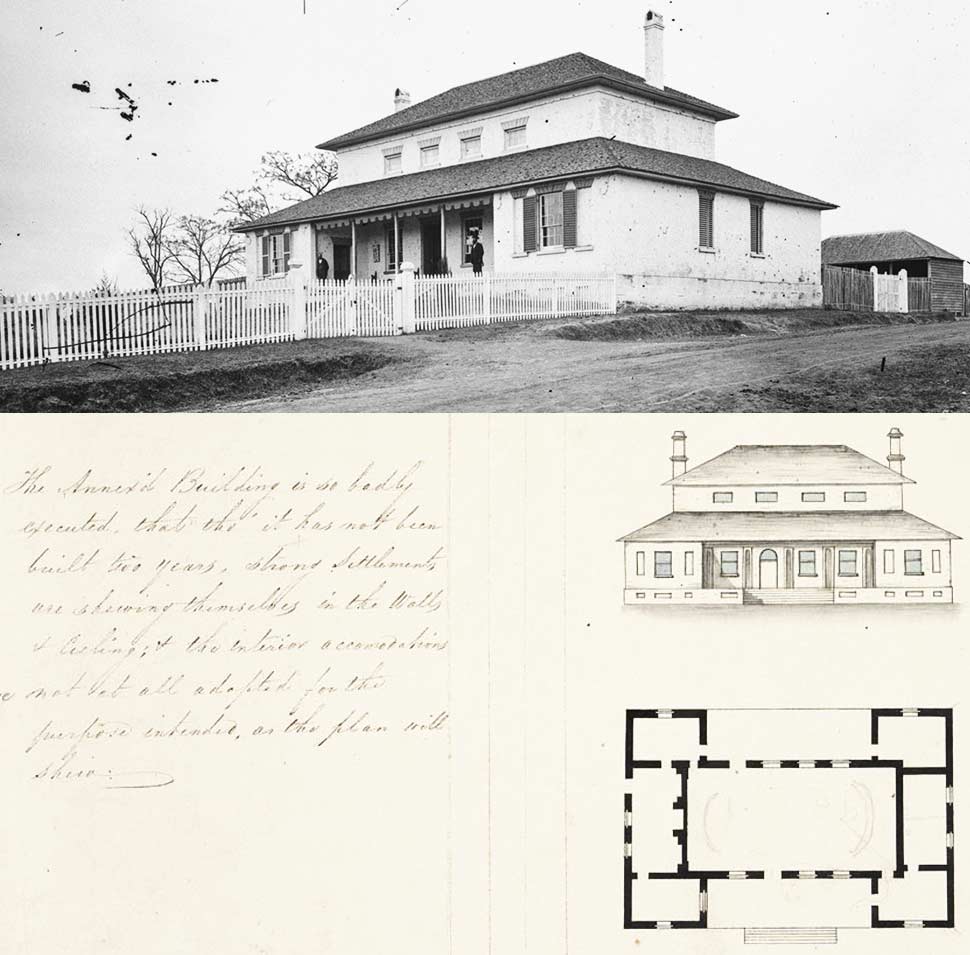 The Annex'd Building is so badly
executed, that tho' it has not been
built two years, strong Settlements
are shewing themselves in the Walls
& Ceiling; & the interior accomodations
are not at all adapted for the
purpose intended, as the plan will
shew: